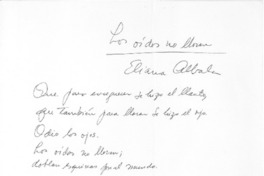 Los oidos no lloran
Eliana Albala
Que para enriquecer se hizo el llanto,
que también para llorar se hizo el ojo
Odio los ojos.
Los oidos no lloran;
doblan esquinas por el mundo.